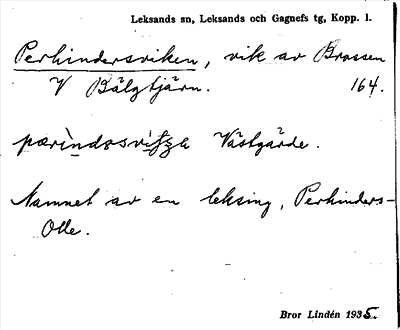 Leksands sn, Leksands och Gagnefs tg, Kopp. l.
Perhindersviken, vik av Brossen
V Bälgtjärn. 164.
Västgärde.
Namnet av en leksing, Perhinders-
Olle.
Bror Lindén 1935.